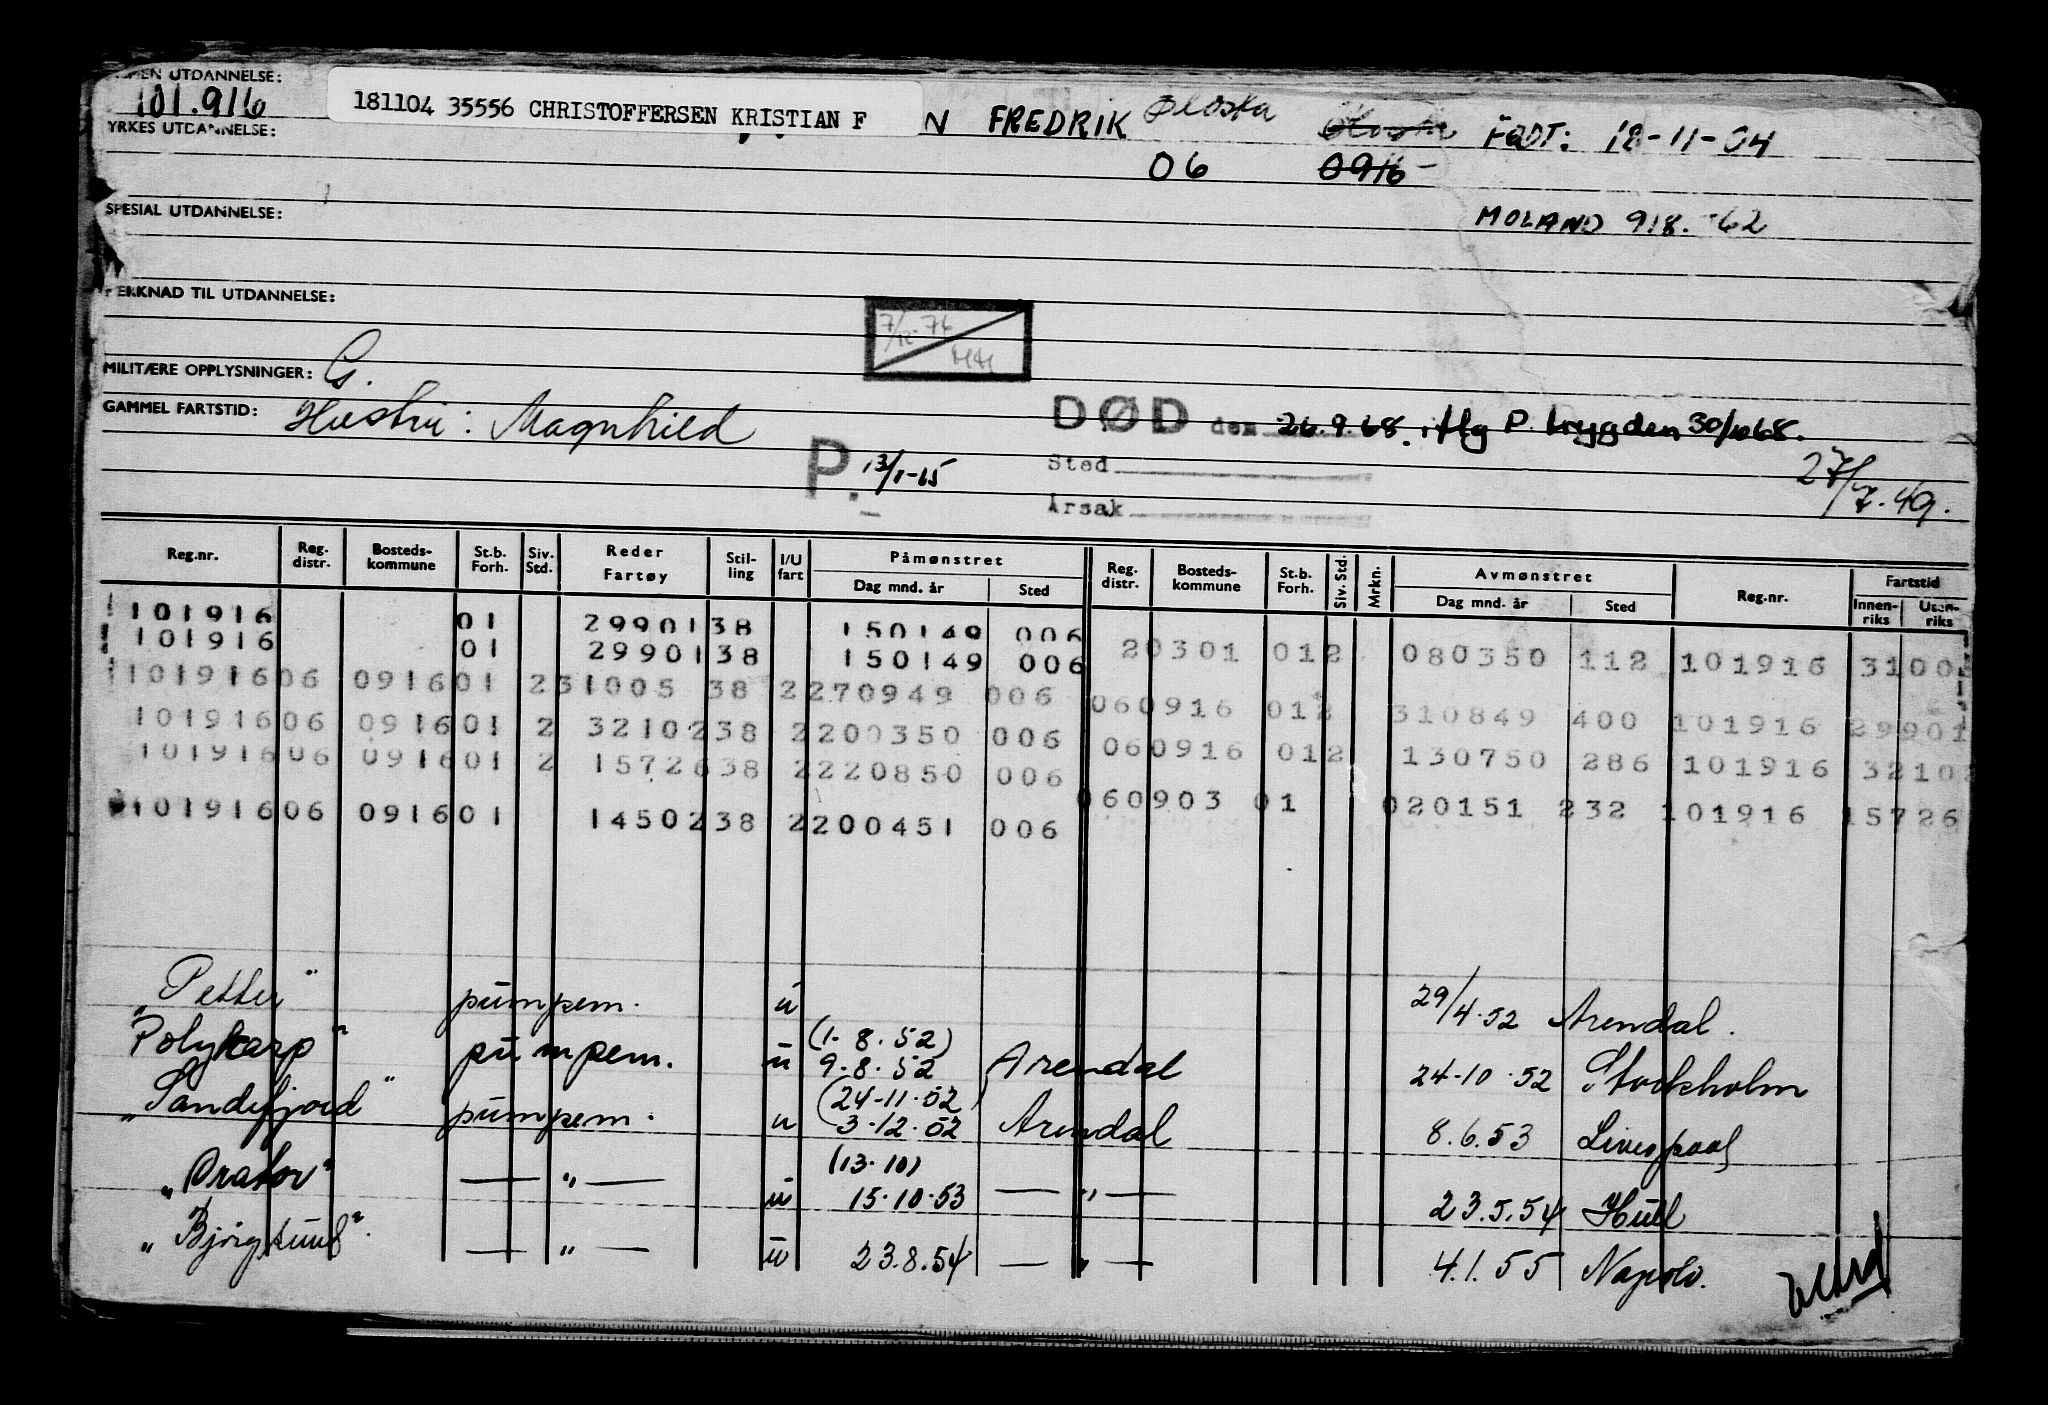 MEN UTDANNELSE:
101.916
181104 35556 CHRISTOFFERSEN KRISTIAN F
N FREDRIK Flosta FØDT: 18-11-04
YRKES UTDANNELSE:
06 0916
SPESIAL UTDANNELSE:
MOLAND 918. -62
MERKNAD TIL UTDANNELSE:
7/12-76
HH
MILITÆRE OPPLYSNINGER: G.
GAMMEL FARTSTID: Hustru: Magnhild
DØD den 26.9.68. iflg P. trygden 30/10 68.
P. 13/1-65
Sted
27/7.49.
Årsak
Reg.nr. Reg. distr. Bosteds-kommune St.b. Forh. Siv. Std. Reder Fartøy Stil-ling I/U fart Påmønstret Dag mnd. år Sted Reg. distr. Bosteds-kommune St.b. Forh. Siv. Std. Mrkn. Avmønstret Dag mnd. år Sted Reg.nr. Fartstid Innen-riks Uten-riks
101916 01 2990138 150149 006
101916 01 2990138 150149 006 20301 012 080350 112 101916 31005
10191606 091601 231005 38 2270949 006 060916 012 310849 400 101916 29901
10191606 091601 2 3210238 2200350 006 060916 012 130750 286 101916 32102
10191606 091601 2 1572638 2220850 006 060903 01 020151 232 101916 15726
10191606 091601 1450238 2200451 006
"Petter" pumpem. u 29/4.52 Arendal.
Polykarp" pumpem. u (1.8.52) 9.8.52 Arendal 24-10.52 Stockholm
"Sandefjord" pumpem. u (24-11.52) 3.12.52 Arendal 8.6.53 Liverpool
"Orator" — " — u (13.10) 15.10.53 — " — 23.5.54 Hull
"Bjørghaug". — " — u 23.8.54 — " — 4.1.55 Napoli.